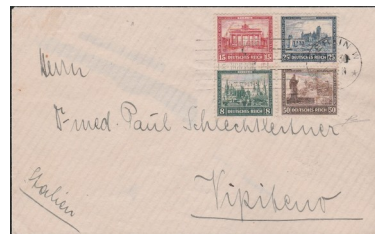 15 15
DEUTSCHES REICH
25 25
DEUTSCHES REICH
8 8
DEUTSCHES REICH
50 50
DEUTSCHES REICH
IN W
Herrn
Dr med. Paul Schlechtleitner
Italien
Vipiteno